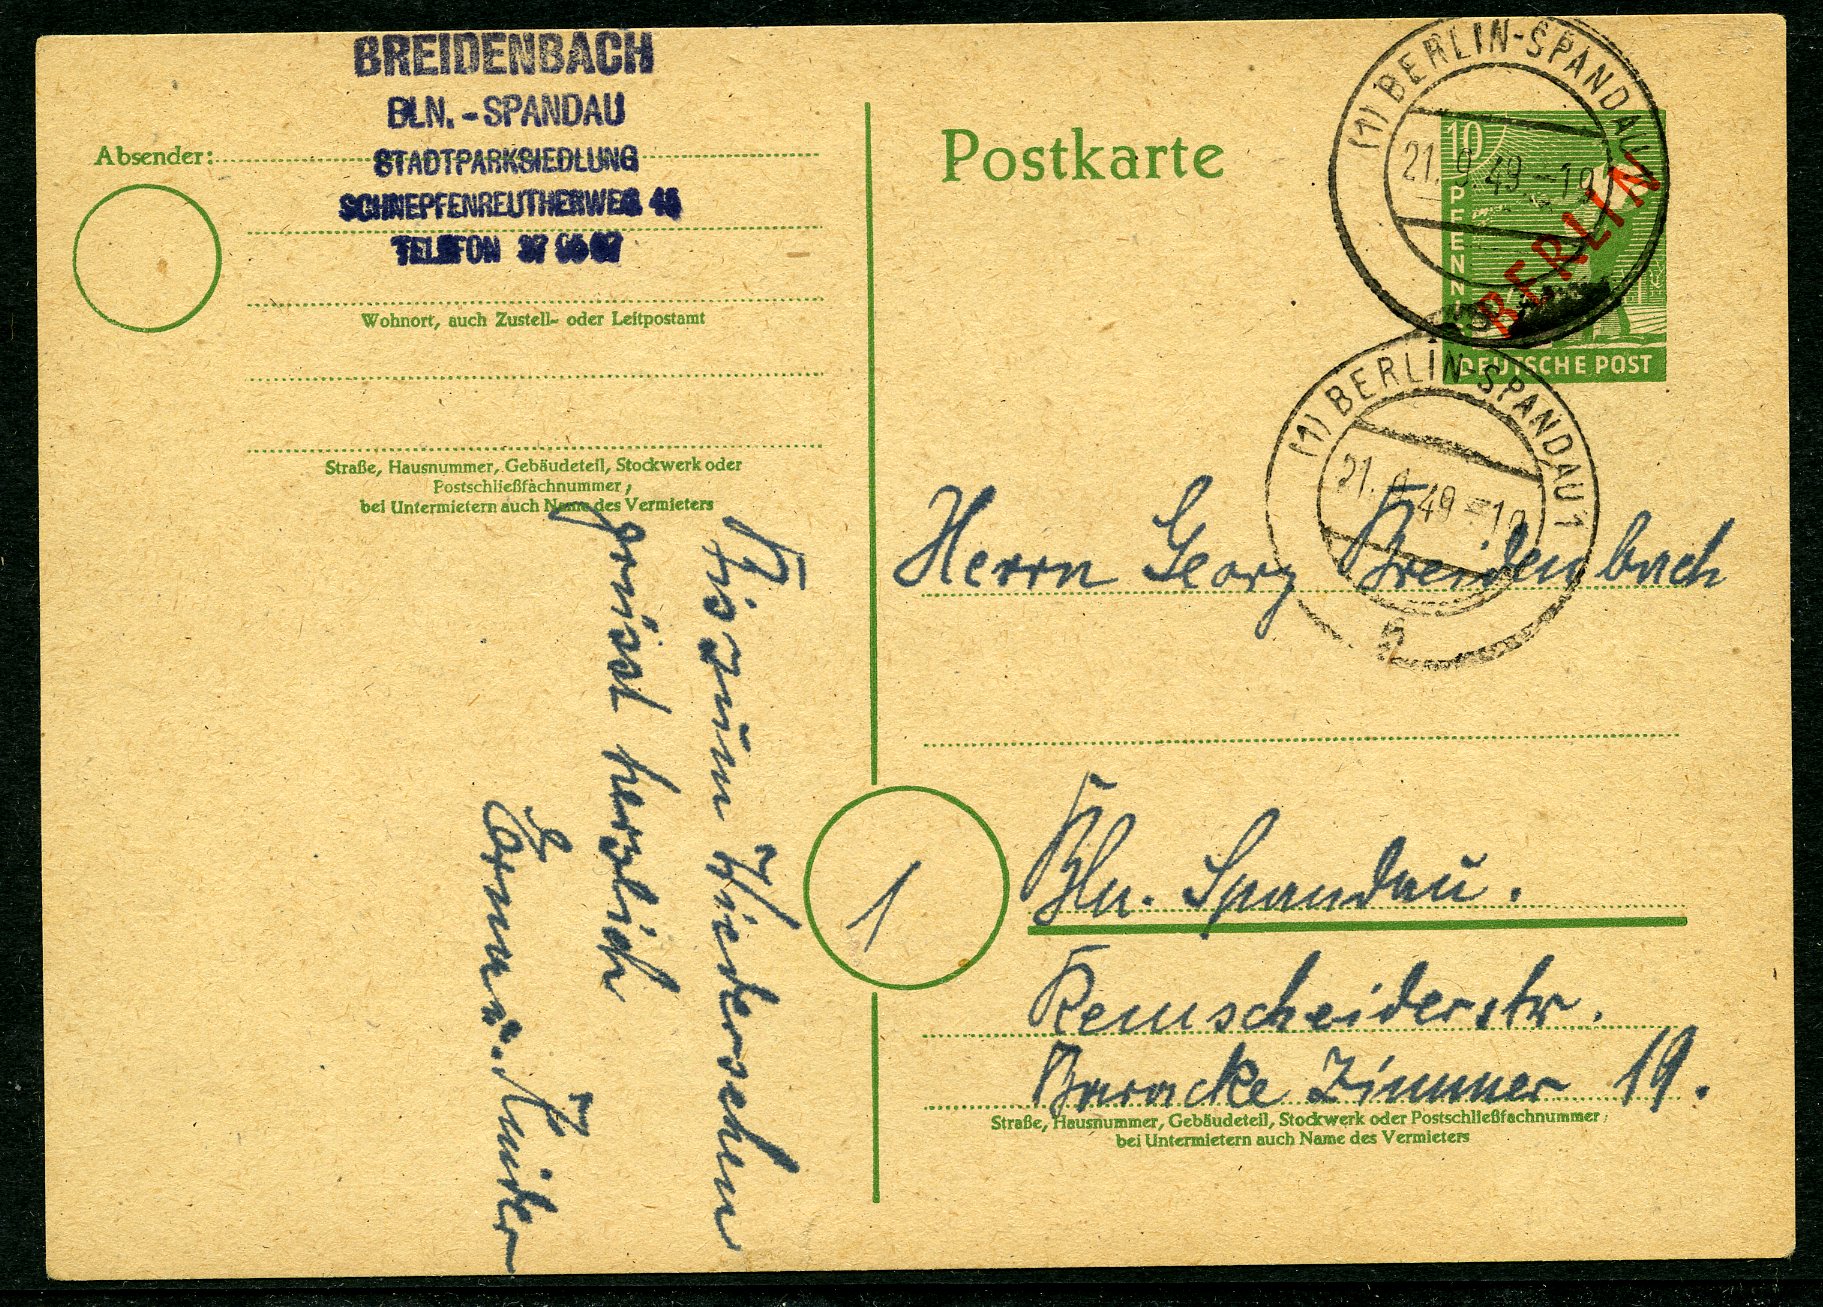 BREIDENBACH
BLN. - SPANDAU
STADTPARKSIEDLUNG
SCHNEPFENREUTHERWEG
TELEFON 37
Absender:
Wohnort, auch Zustell- oder Leitpostamt
Straße, Hausnummer, Gebäudeteil, Stockwerk oder
Postschließfachnummer,
bei Untermietern auch Name des Vermieters
Bis zum Wiedersehen
grüsst herzlich
Erna u. Kinder
Postkarte
(1) BERLIN-SPANDAU 1
21.9.49-19
10
PFENNIG
BERLIN
DEUTSCHE POST
(1) BERLIN-SPANDAU 1
21.9.49-19
Herrn Georg Breidenbach
1
Bln. Spandau.
Remscheiderstr.
Baracke Zimmer 19.
Straße, Hausnummer, Gebäudeteil, Stockwerk oder Postschließfachnummer,
bei Untermietern auch Name des Vermieters